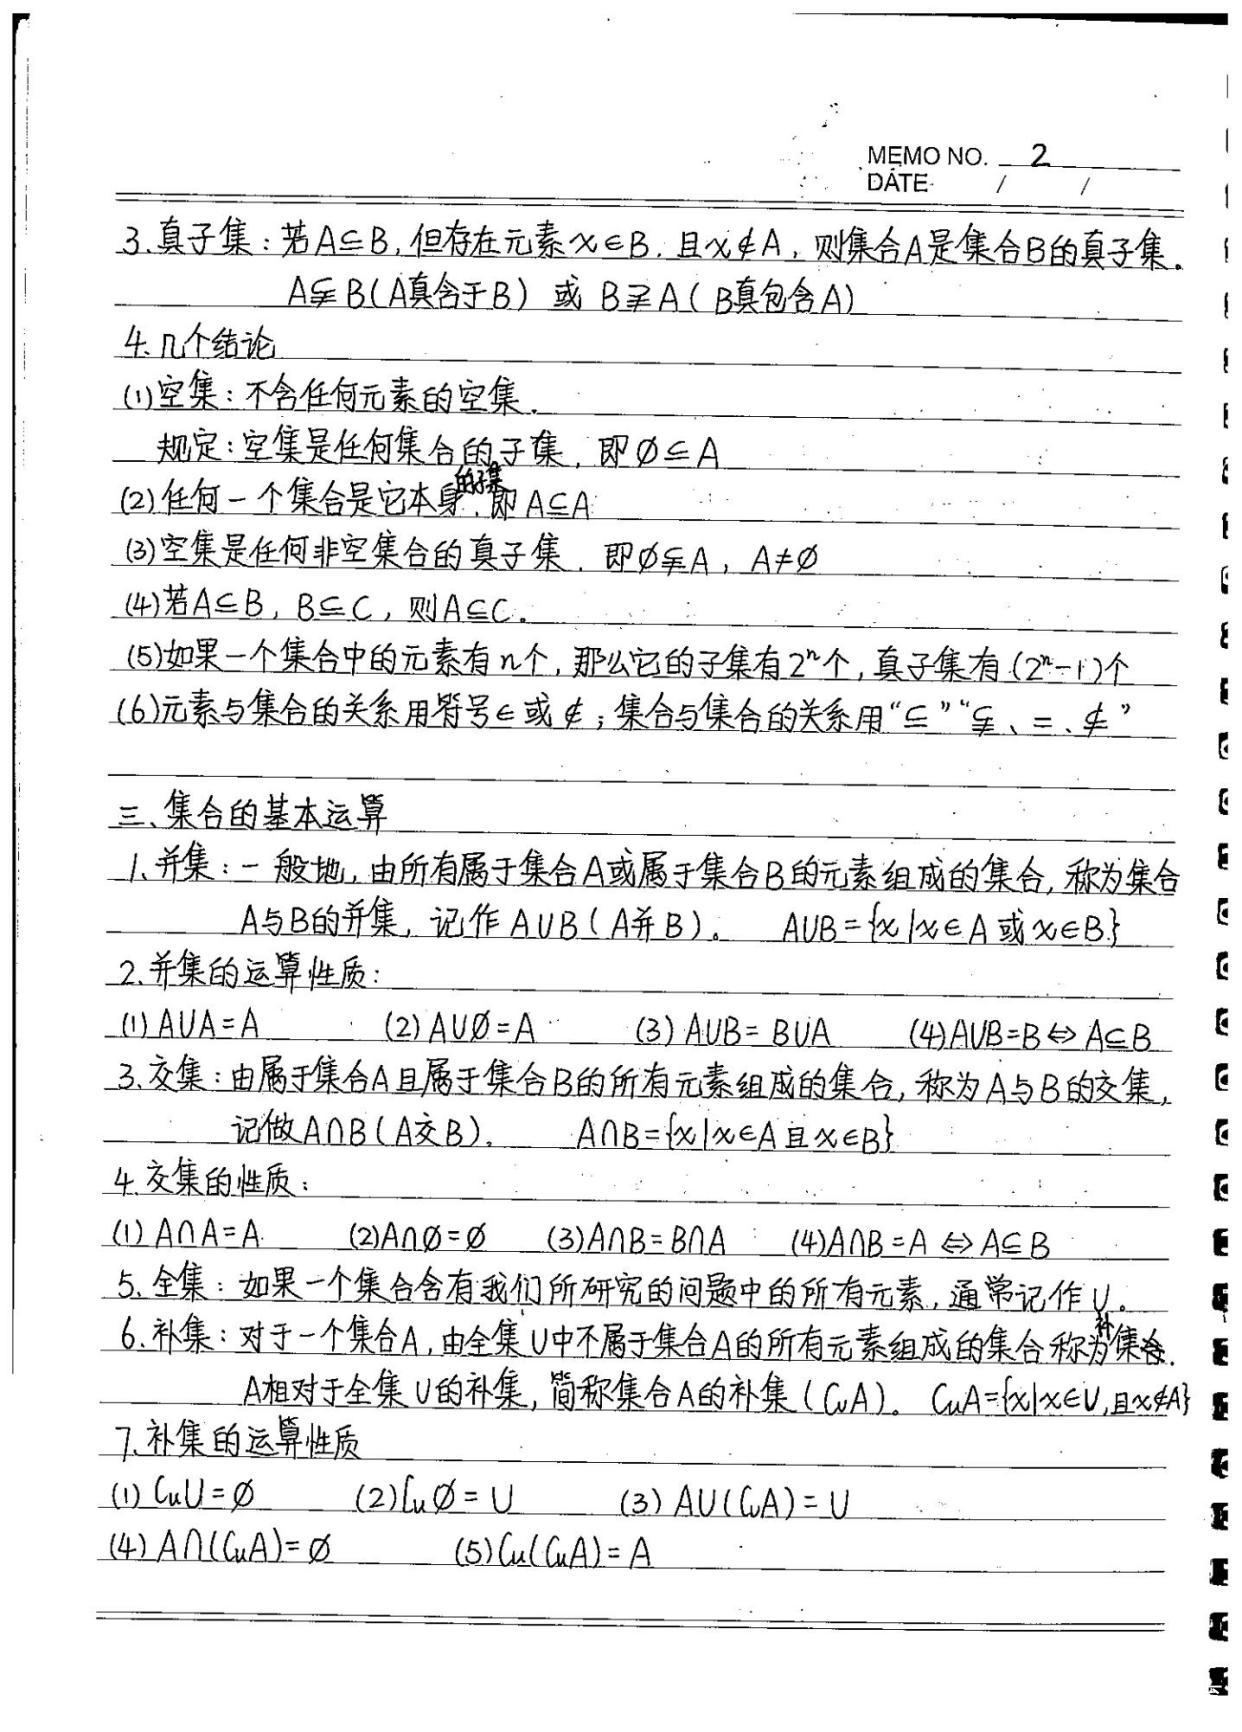 MEMO NO. 2
DATE / /
3.真子集：若A⊆B,但存在元素x∈B.且x∉A，则集合A是集合B的真子集。
A⫋B(A真含于B) 或 B⫌A(B真包含A)
4.几个结论
(1)空集：不含任何元素的空集.
规定：空集是任何集合的子集，即∅⊆A
(2)任何一个集合是它本身的子集.即A⊆A
(3)空集是任何非空集合的真子集. 即∅⫋A，A≠∅
(4)若A⊆B，B⊆C，则A⊆C。
(5)如果一个集合中的元素有n个,那么它的子集有2ⁿ个,真子集有(2ⁿ-1)个
(6)元素与集合的关系用符号∈或∉；集合与集合的关系用“⊆”“⫋、=、⊄”
三、集合的基本运算
1.并集：一般地,由所有属于集合A或属于集合B的元素组成的集合,称为集合
A与B的并集，记作A∪B(A并B)。 A∪B={x|x∈A或x∈B}
2.并集的运算性质：
(1)A∪A=A (2)A∪∅=A (3)A∪B=B∪A (4)A∪B=B⇔A⊆B
3.交集：由属于集合A且属于集合B的所有元素组成的集合,称为A与B的交集,
记做A∩B(A交B). A∩B={x|x∈A且x∈B}
4.交集的性质：
(1)A∩A=A (2)A∩∅=∅ (3)A∩B=B∩A (4)A∩B=A⇔A⊆B
5.全集：如果一个集合含有我们所研究的问题中的所有元素,通常记作U。
6.补集：对于一个集合A,由全集U中不属于集合A的所有元素组成的集合称为补集合.
A相对于全集U的补集,简称集合A的补集(∁uA)。 ∁uA={x|x∈U,且x∉A}
7.补集的运算性质
(1)∁uU=∅ (2)∁u∅=U (3)A∪(∁uA)=U
(4)A∩(∁uA)=∅ (5)∁u(∁uA)=A